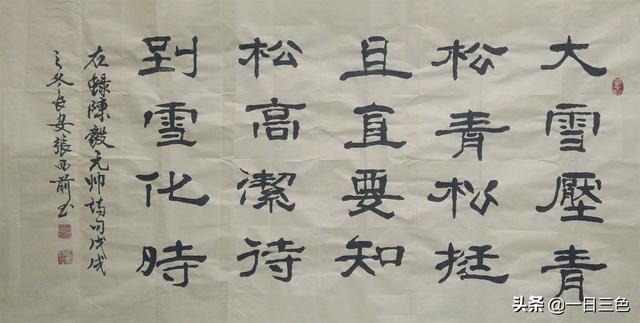 大雪壓青
松青松挺
且直要知
松高潔待
到雪化時
右錄陳毅元帅詩句戊戌
之冬長安張西前书
头条 @一日三色